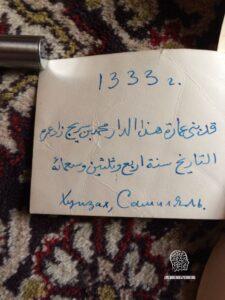 1333 г.
قد بنى عمارة هذا الدار محمد بن
التاريخ سنة اربع وثلثين وسبعمائة
Хунзах, Самилахъ.